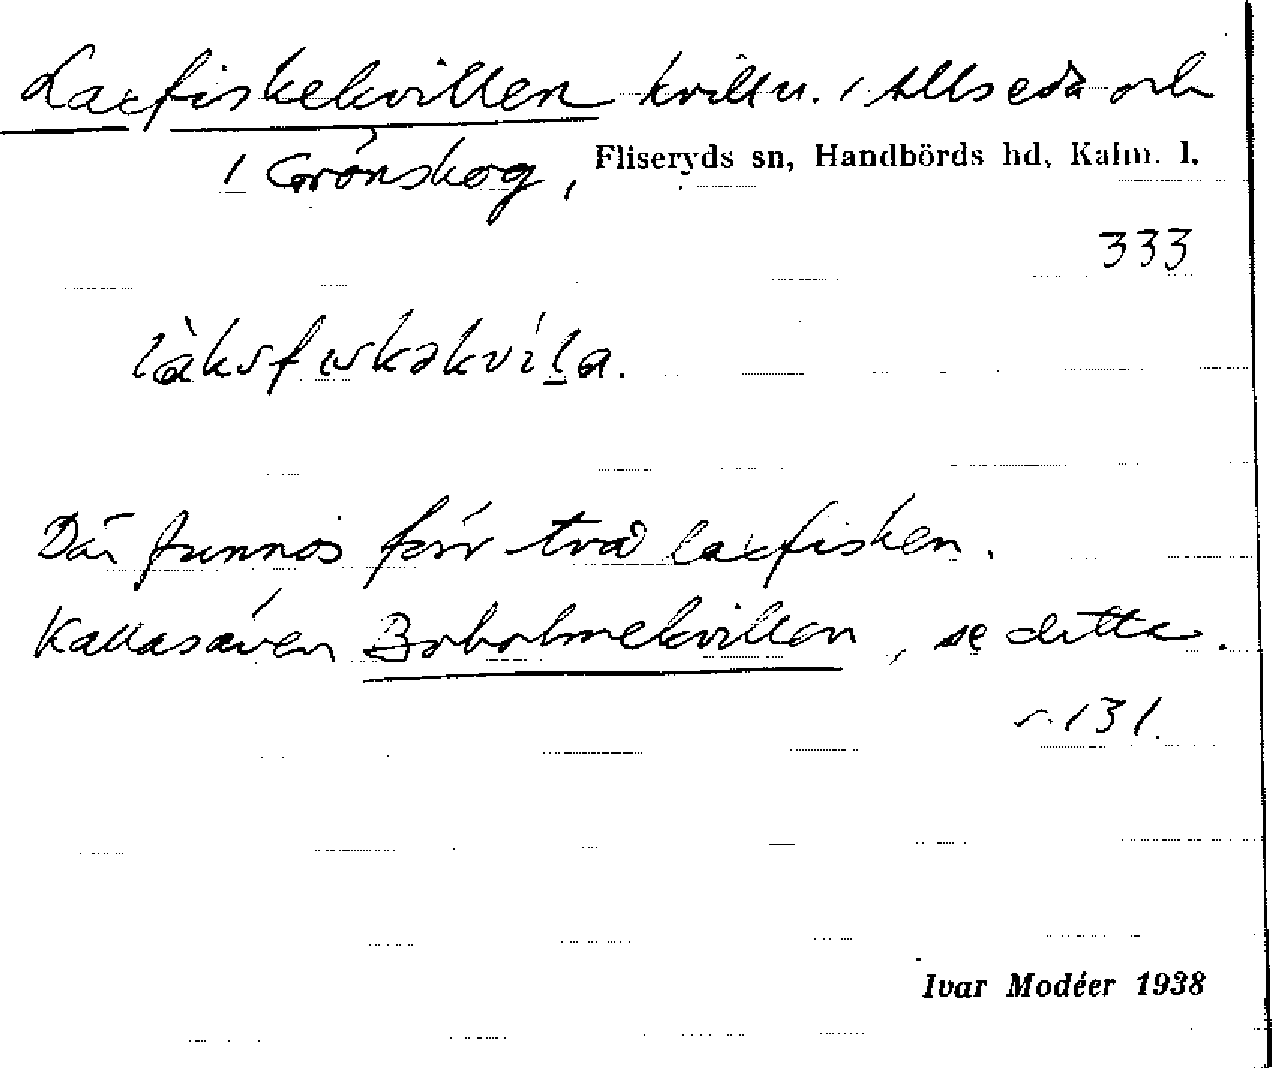 Laxfiskekvillen kvill u. i Allseda och
i Grönskog, Fliseryds sn, Handbörds hd, Kalm. l.
333
làksfıskəkvíla.
Där funnos förr två laxfisken.
Kallas även Boholmekvillen, se detta.
131.
Ivar Modéer 1938